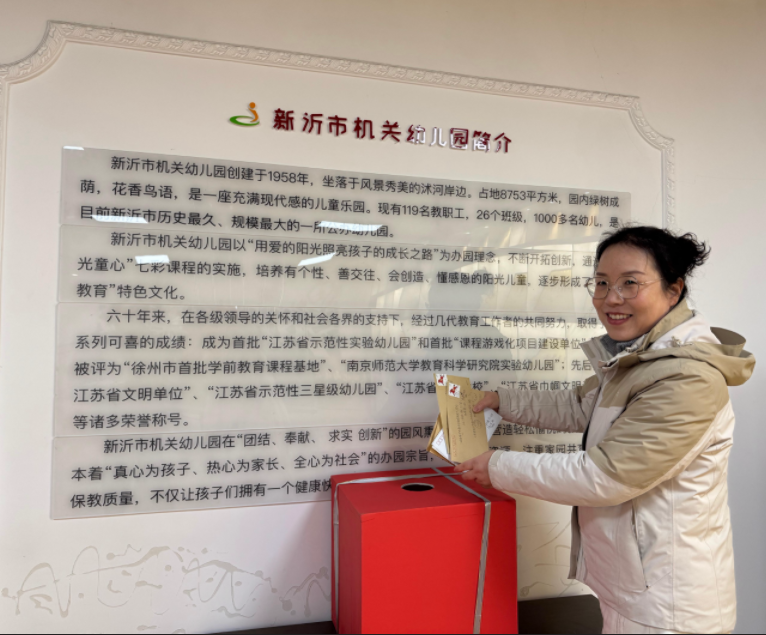 新沂市机关幼儿园简介
新沂市机关幼儿园创建于1958年，坐落于风景秀美的沭河岸边。占地8753平方米，园内绿树成
荫，花香鸟语，是一座充满现代感的儿童乐园。现有119名教职工，26个班级，1000多名幼儿，是
目前新沂市历史最久、规模最大的一所公办幼儿园。
新沂市机关幼儿园以“用爱的阳光照亮孩子的成长之路”为办园理念，不断开拓创新，通
光童心”七彩课程的实施，培养有个性、善交往、会创造、懂感恩的阳光儿童，逐步形成了
教育”特色文化。
六十年来，在各级领导的关怀和社会各界的支持下，经过几代教育工作者的共同努力，取得
系列可喜的成绩：成为首批“江苏省示范性实验幼儿园”和首批“课程游戏化项目建设单位”
被评为“徐州市首批学前教育课程基地”、“南京师范大学教育科学研究院实验幼儿园”；先后
江苏省文明单位”、“江苏省示范性三星级幼儿园”、“江苏省 校”、“江苏省巾帼文明
等诸多荣誉称号。
新沂市机关幼儿园在“团结、奉献、求实 创新”的园风 营造轻松愉
本着“真心为孩子、热心为家长、全心为社会”的办园宗旨， 注重家园共
保教质量，不仅让孩子们拥有一个健康快